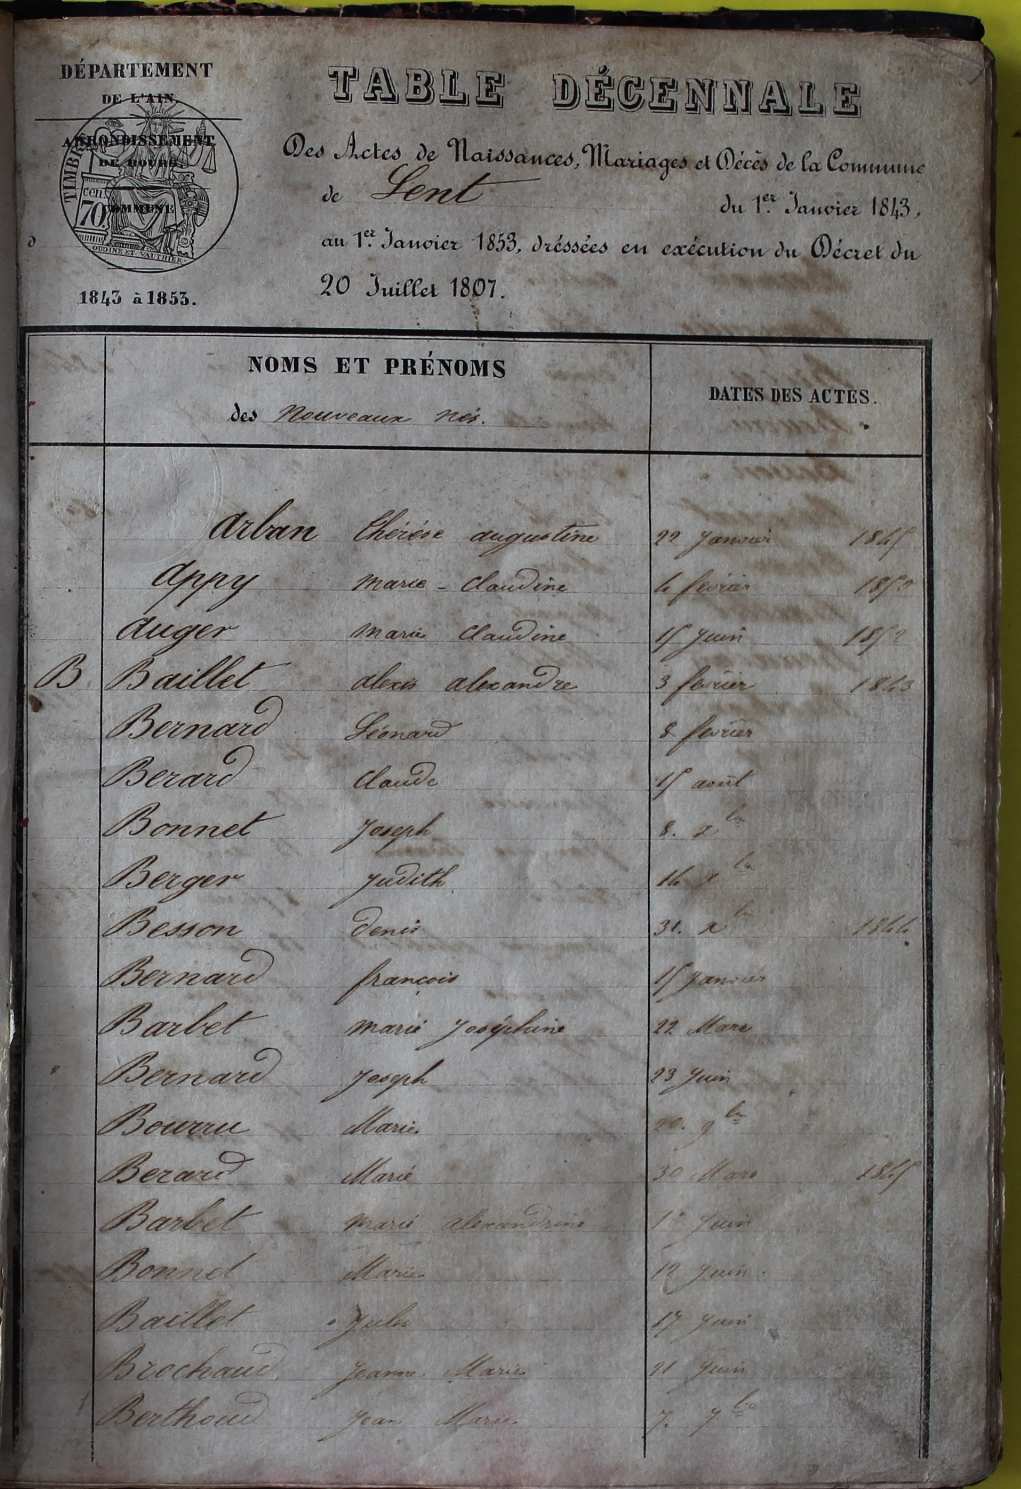 DÉPARTEMENT
DE L'AIN.
ARRONDISSEMENT
DE BOURG.
TIMBRE
cen. 70
COMMUNE
OUDINÉ ET VAUTHIER.
1843 à 1853.
TABLE DÉCENNALE
Des Actes de Naissances, Mariages et Décès de la Commune
de Lent du 1er Janvier 1843,
au 1er Janvier 1853, dréssées en exécution du Décret du
20 Juillet 1807.
NOMS ET PRÉNOMS
des Nouveaux nés.
DATES DES ACTES.
Arban thérèse augustine 22 Janvier 1845
Appy marie - Claudine 4 fevrier 1853
Auger marie Claudine 15 Juin 1852
B Baillet alexis alexandre 3 fevrier 1843
Bernard Léonard 8 fevrier
Berard Claude 15 août
Bonnet Joseph 8. xbre
Berger Judith 14 xbre
Besson denis 31. xbre 1844
Bernard françois 15 Janvier
Barbet marie Joséphine 22 Mars
Bernard Joseph 23 Juin
Bourru Marie 20. 9bre
Berard Marie 30 Mars 1845
Barbet marie alexandrine 1er Juin
Bonnet Marie 12 Juin.
Baillet Jules 17 Juin
Brochaud Jeanne Marie 21 Juin
Berthoud Jean Marie 7. 7bre